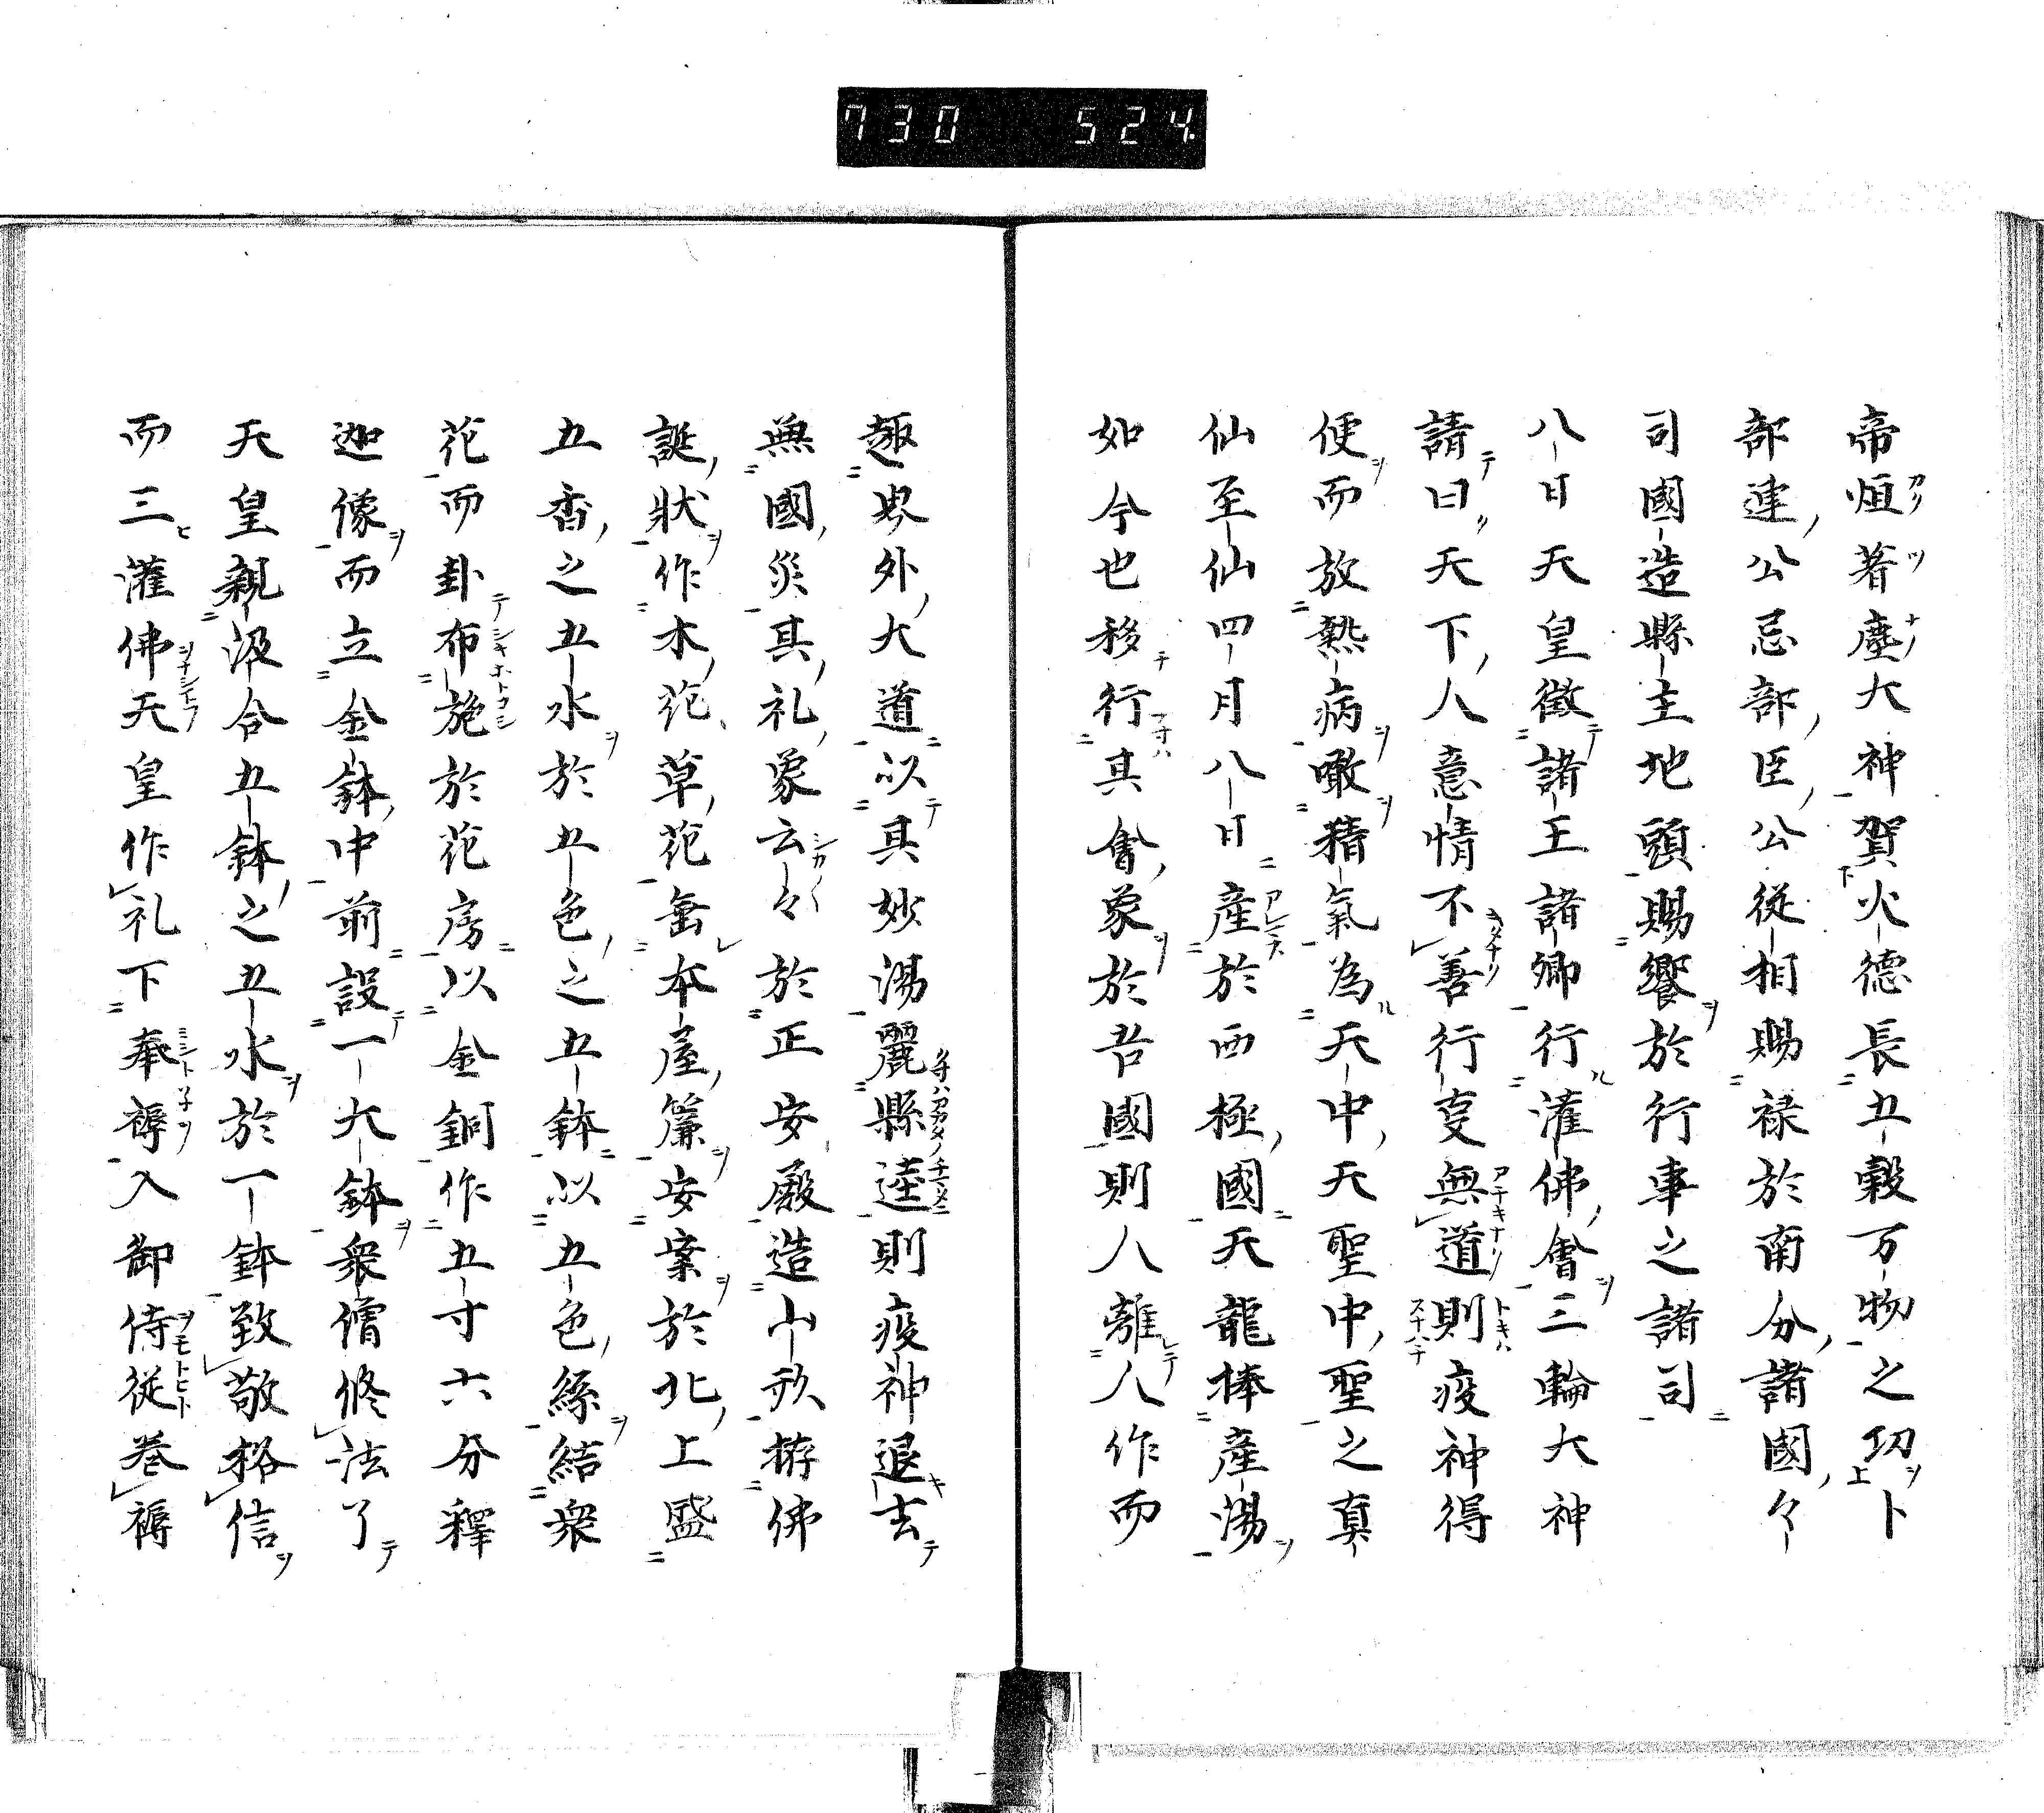 730 524
帝烜着塵大神賀火德長五穀万物之㓛卜
部連公忌部臣公從相賜祿於南分諸國々
司國造縣主地頭賜饗於行事之諸司
八日天皇徵諸王諸卿行灌佛會三輪大神
請曰天下人意情不善行㕝無道則疫神得
便而放熱病噉精氣為天中天聖中聖之真
仙至仙四月八日産於西極國天龍捧産湯
如今也移行其會象於吾國則人離人作而
趣畏外大道以其妙湯麗縣逵則疫神退去
無國災其礼象云々於正安殿造山形擀佛
誕狀作木花草花缶本屋簾安案於北上盛
五香之五水於五色之五鉢以五色絲結衆
花而卦布施於花房以金銅作五寸六分釋
迦像而立金鉢中前設一大鉢衆僧修法了
天皇親汲合五鉢之五水於一鉢致敬格信
而三灌佛天皇作礼下奉褥入御侍從巻褥